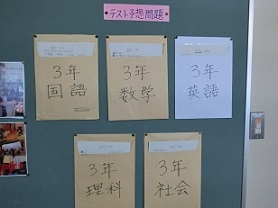 •テスト予想問題•
3年
国語
3年
数学
3年
英語
3年
理科
3年
社会